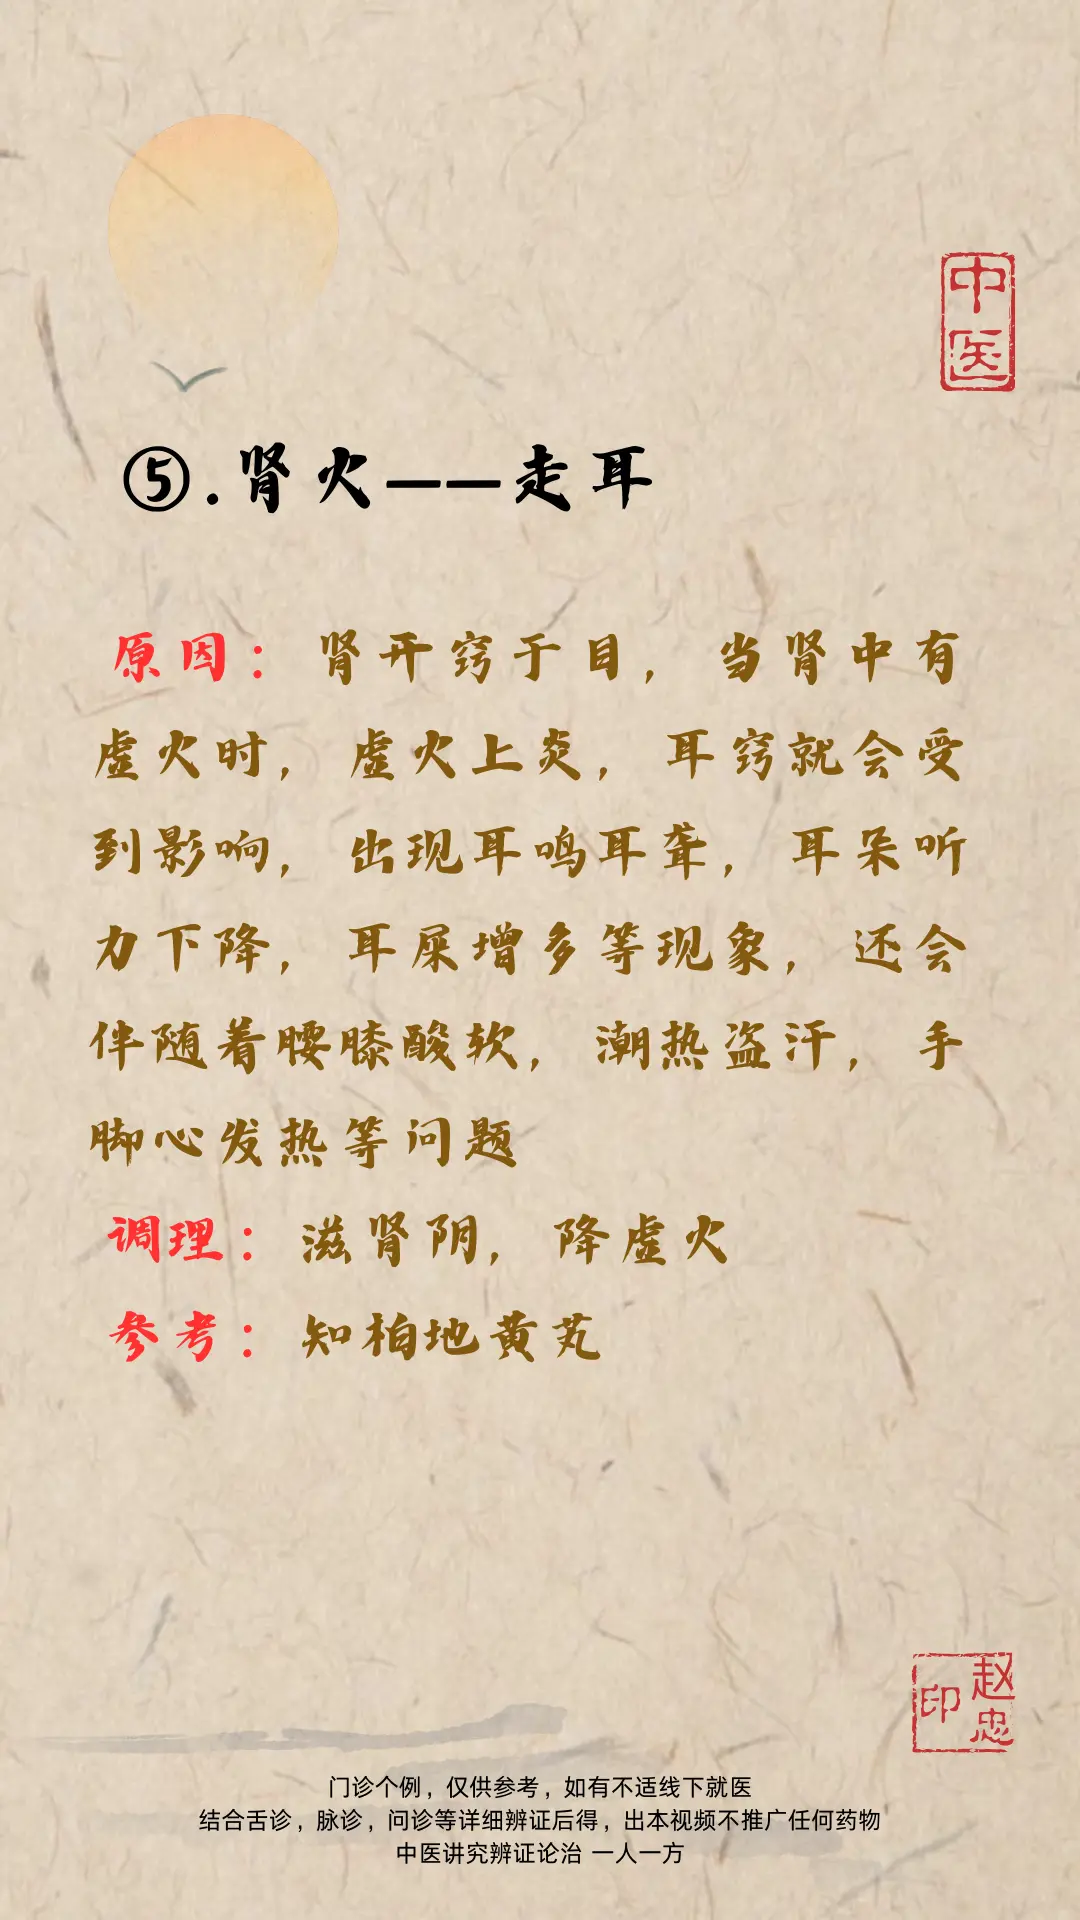 中医
⑤.肾火——走耳
原因：肾开窍于目，当肾中有
虚火时，虚火上炎，耳窍就会受
到影响，出现耳鸣耳聋，耳朵听
力下降，耳屎增多等现象，还会
伴随着腰膝酸软，潮热盗汗，手
脚心发热等问题
调理：滋肾阴，降虚火
参考：知柏地黄苋
赵忠印
门诊个例，仅供参考，如有不适线下就医
结合舌诊，脉诊，问诊等详细辨证后得，出本视频不推广任何药物
中医讲究辨证论治 一人一方